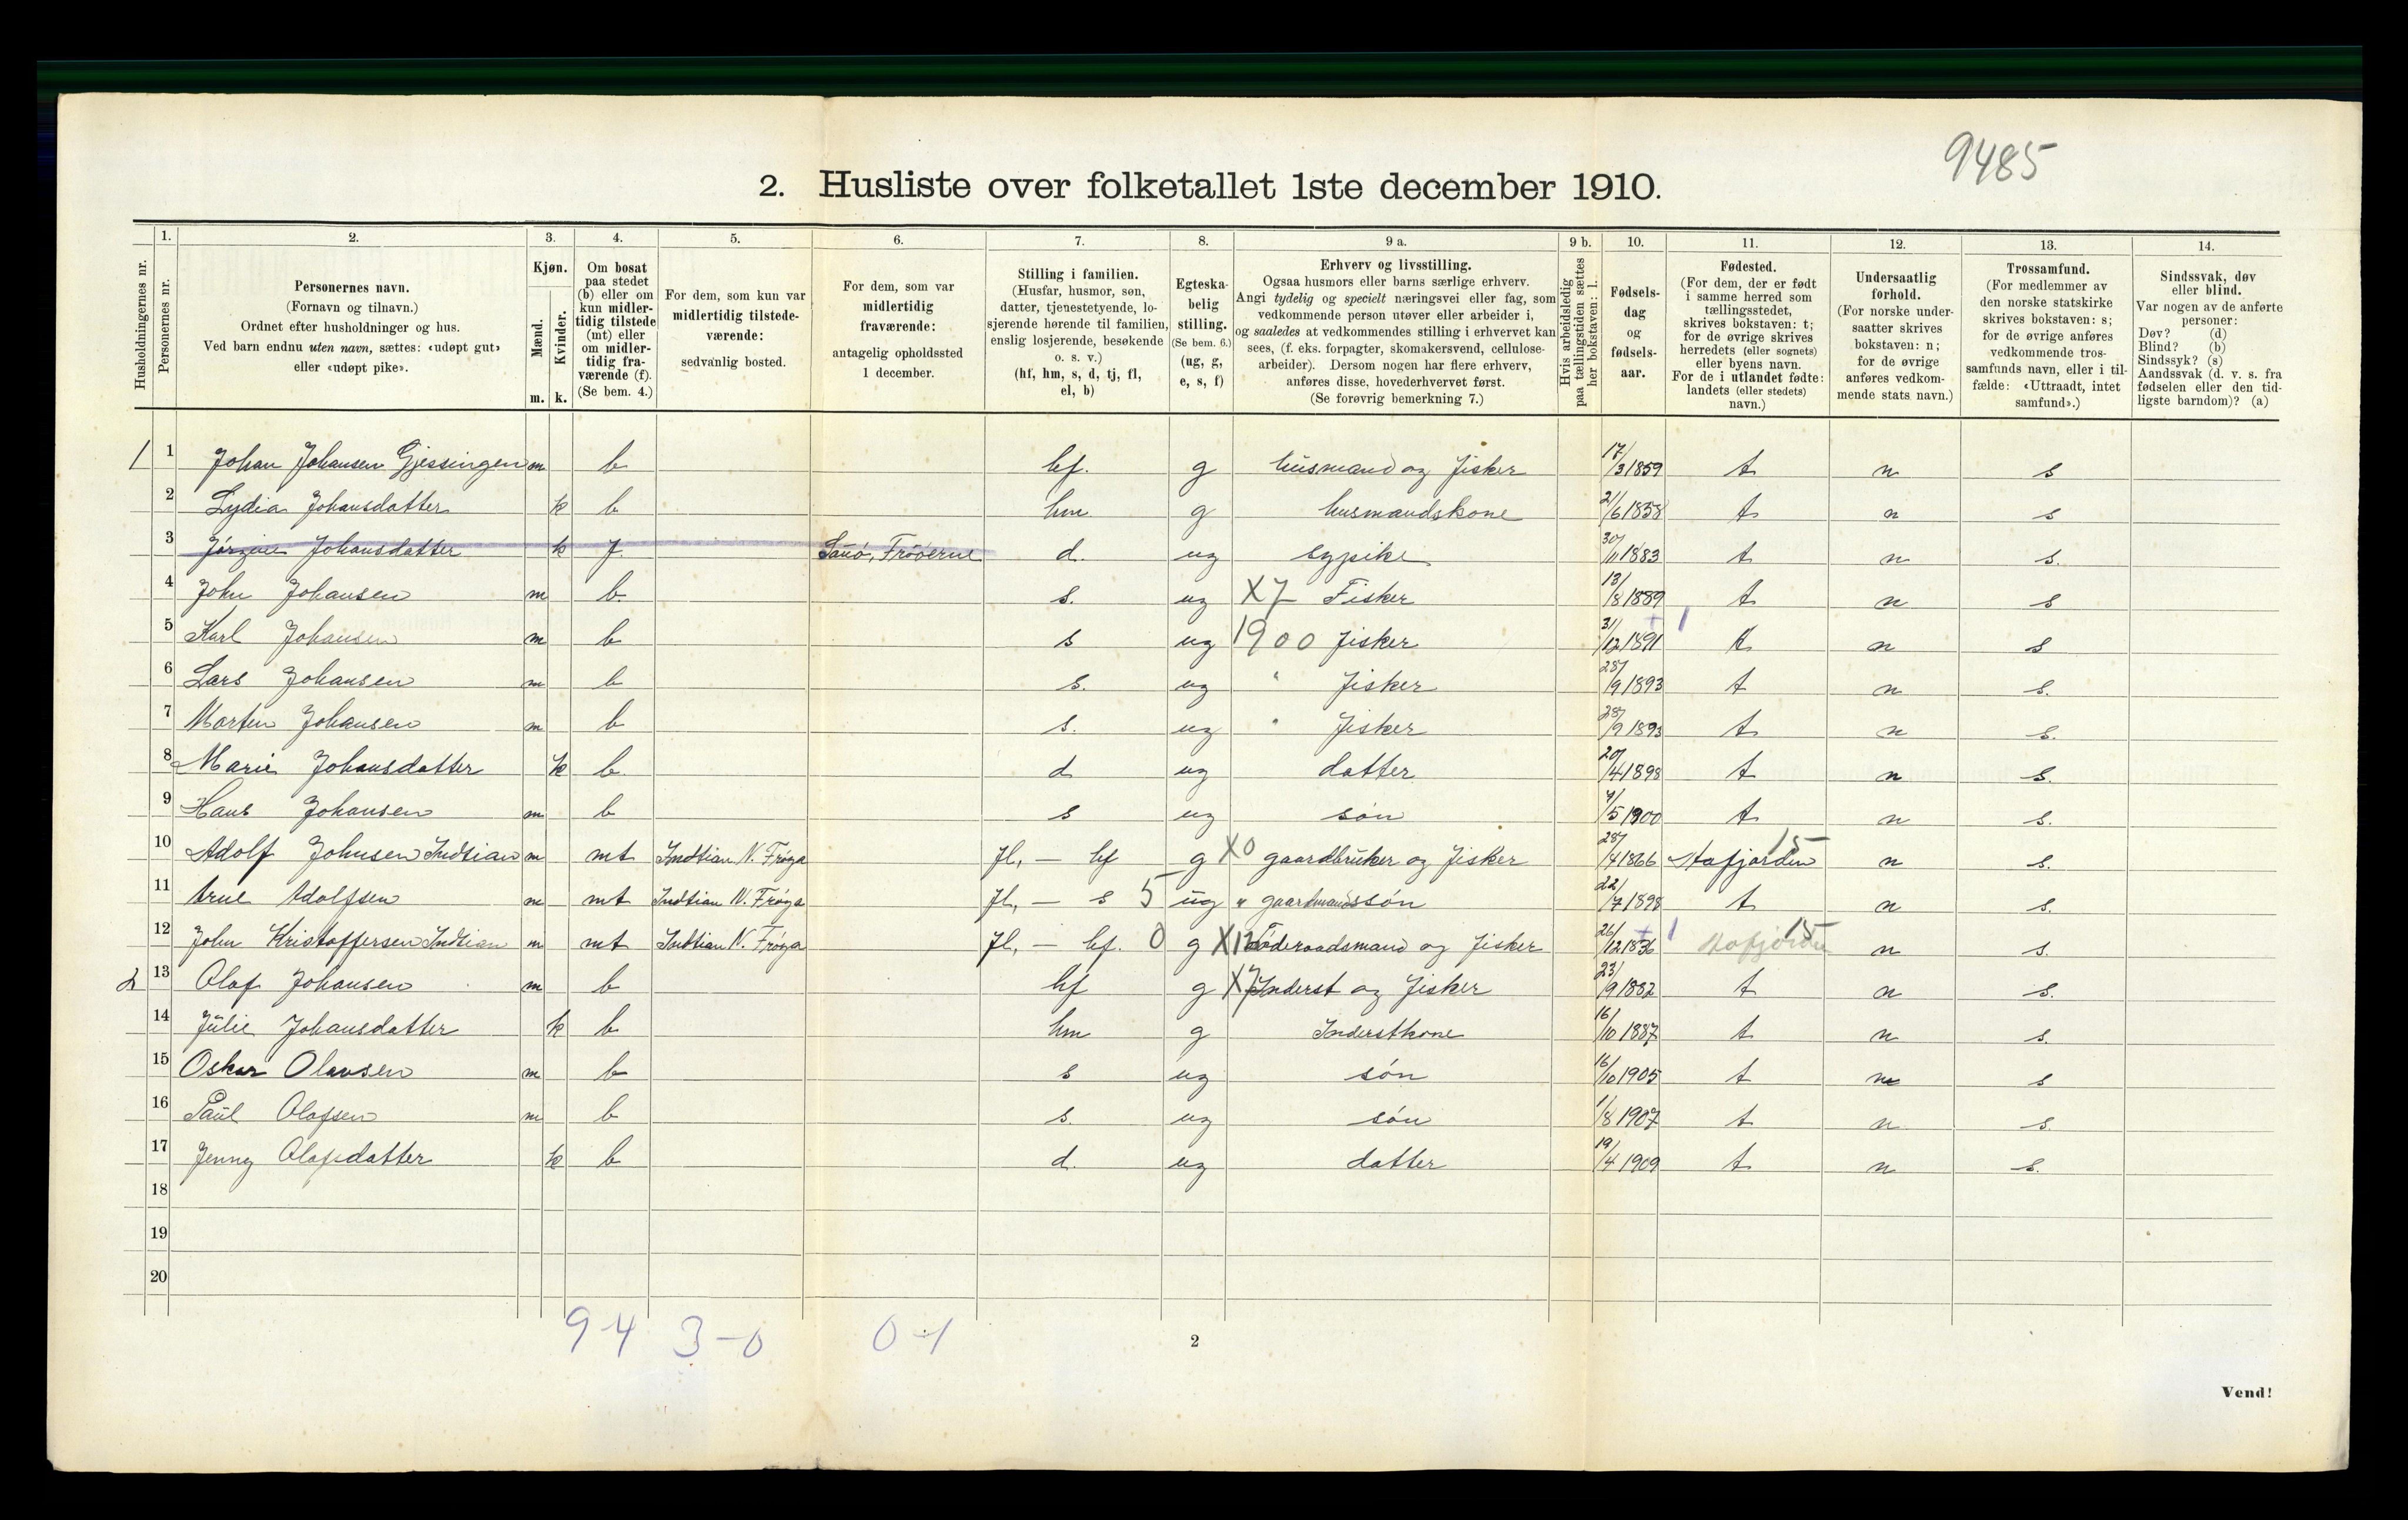 9485
2. Husliste over folketallet 1ste december 1910.
1. 2. 3. 4. 5. 6. 7. 8. 9 a. 9 b. 10. 11. 12. 13. 14.
Husholdningernes nr.
Personernes nr.
Personernes navn.
(Fornavn og tilnavn.)
Ordnet efter husholdninger og hus.
Ved barn endnu uten navn, sættes: «udøpt gut»
eller «udøpt pike».
Kjøn.
Mænd.
Kvinder.
m. k.
Om bosat
paa stedet
(b) eller om
kun midler-
tidig tilstede
(mt) eller
om midler-
tidig fra-
værende (f).
(Se bem. 4.)
For dem, som kun var
midlertidig tilstede-
værende:
sedvanlig bosted.
For dem, som var
midlertidig
fraværende:
antagelig opholdssted
1 december.
Stilling i familien.
(Husfar, husmor, søn,
datter, tjenestetyende, lo-
sjerende hørende til familien,
enslig losjerende, besøkende
o. s. v.)
(hf, hm, s, d, tj, fl,
el, b)
Egteska-
belig
stilling.
(Se bem. 6.)
(ug, g,
e, s, f)
Erhverv og livsstilling.
Ogsaa husmors eller barns særlige erhverv.
Angi tydelig og specielt næringsvei eller fag, som
vedkommende person utøver eller arbeider i,
og saaledes at vedkommendes stilling i erhvervet kan
sees, (f. eks. forpagter, skomakersvend, cellulose-
arbeider). Dersom nogen har flere erhverv,
anføres disse, hovederhvervet først.
(Se forøvrig bemerkning 7.)
Hvis arbeidsledig
paa tællingstiden sættes
her bokstaven: l.
Fødsels-
dag
og
fødsels-
aar.
Fødested.
(For dem, der er født
i samme herred som
tællingsstedet,
skrives bokstaven: t;
for de øvrige skrives
herredets (eller sognets)
eller byens navn.
For de i utlandet fødte:
landets (eller stedets)
navn.)
Undersaatlig
forhold.
(For norske under-
saatter skrives
bokstaven: n;
for de øvrige
anføres vedkom-
mende stats navn.)
Trossamfund.
(For medlemmer av
den norske statskirke
skrives bokstaven: s;
for de øvrige anføres
vedkommende tros-
samfunds navn, eller i til-
fælde: «Uttraadt, intet
samfund».)
Sindssvak, døv
eller blind.
Var nogen av de anførte
personer:
Døv? (d)
Blind? (b)
Sindssyk? (s)
Aandssvak (d. v. s. fra
fødselen eller den tid-
ligste barndom)? (a)
1 1 Johan Johansen Gjessingen m b hf. g husmand og fisker 17/3 1859 t n s
2 Lydia Johansdatter k b hm g husmandskone 21/6 1858 t n s
3 Jørgine Johansdatter k f Sauø, Frøøerne d. ug sypike 30/11 1883 t n s.
4 John Johansen m b. s. ug X7 Fisker 13/8 1889 t n s
5 Karl Johansen m b s ug 1900 fisker 31/12 1891 t n s
6 Lars Johansen m b s. ug " fisker 28/9 1893 t n s.
7 Morten Johansen m b s. ug " fisker 28/9 1893 t n s.
8 Marie Johansdatter k b d ug datter 20/4 1898 t n s.
9 Hans Johansen m b s ug søn 4/5 1900 t n s.
10 Adolf Johnsen Indtian m mt Indtian N. Frøya fl, — hf g X0 gaardbruker og fisker 28/4 1866 Hafjorden 15 n s.
11 Adolfsen m mt Indtian N. Frøya fl, — s 5 ug " gaardmandssøn 22/7 1898 t n s.
12 John Kristoffersen Indtian m mt Indtian N. Frøya fl, — hf. 0 g X12 Føderaadsmand og fisker 26/12 1836 Hafjorden 15 n s.
2 13 Olaf Johansen m b hf g X7 Inderst og fisker 23/9 1882 t n s.
14 Julie Johansdatter k b hm g Inderstkone 16/10 1887 t n s.
15 Oskar Olavsen m b s ug søn 16/10 1905 t n s
16 Paul Olafsen m b s. ug søn 1/8 1907 t n s.
17 Jenny Olafsdatter k b d. ug datter 19/4 1909 t n s.
18
19
20
9-4 3-0 0-1
2
Vend!